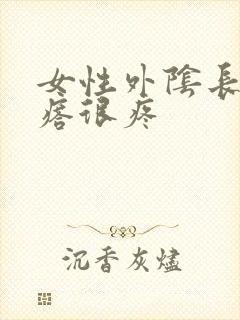 女性外陰長
瘩很疼
沉香灰燼